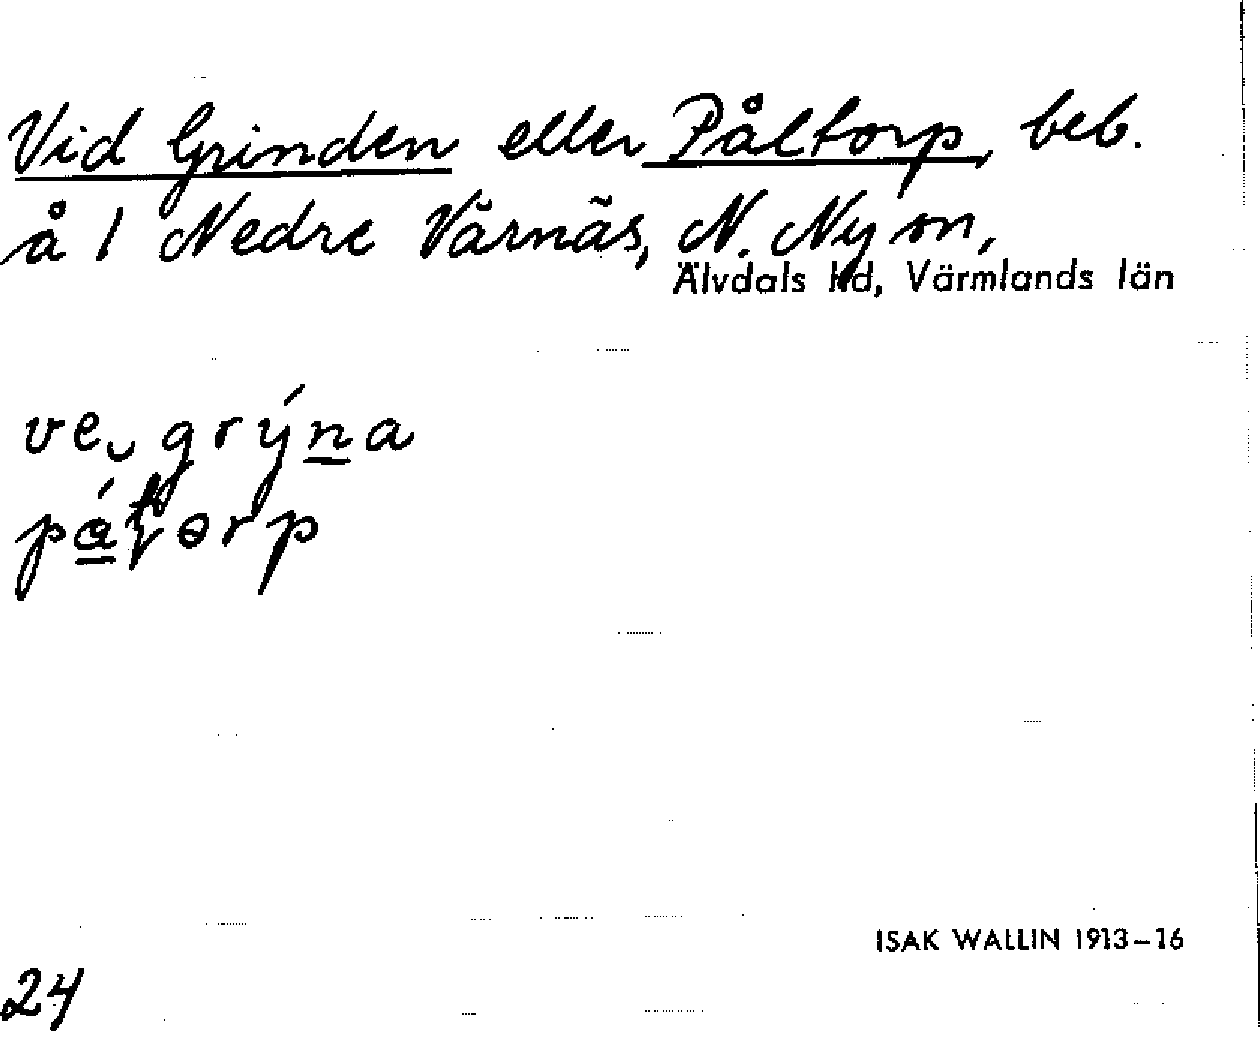 Vid Grinden eller Påltorp, beb.
å 1 Nedre Värnäs, N. Ny sn,
Älvdals hd, Värmlands län
ve‿ grýn̲a
ISAK WALLIN 1913–16
24